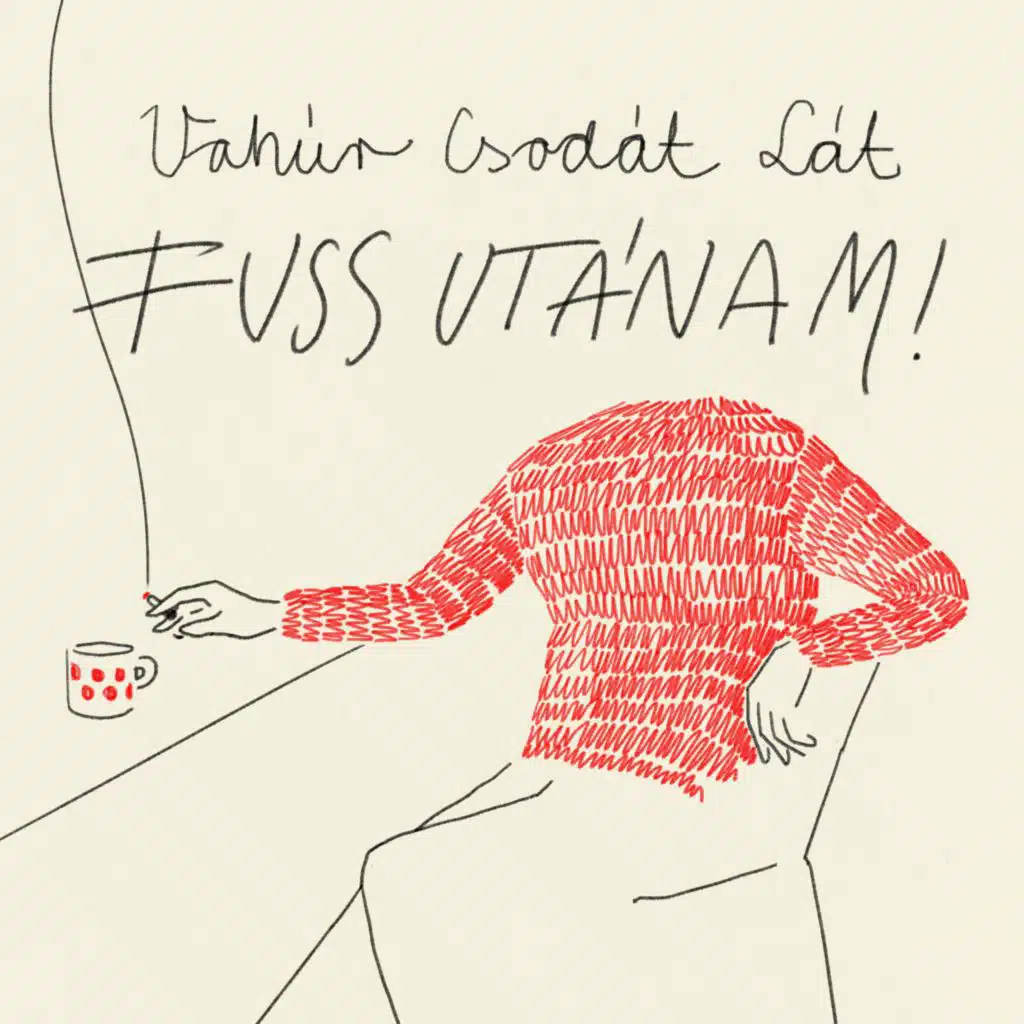 Vahúr Csodát Lát
FUSS UTÁNAM!